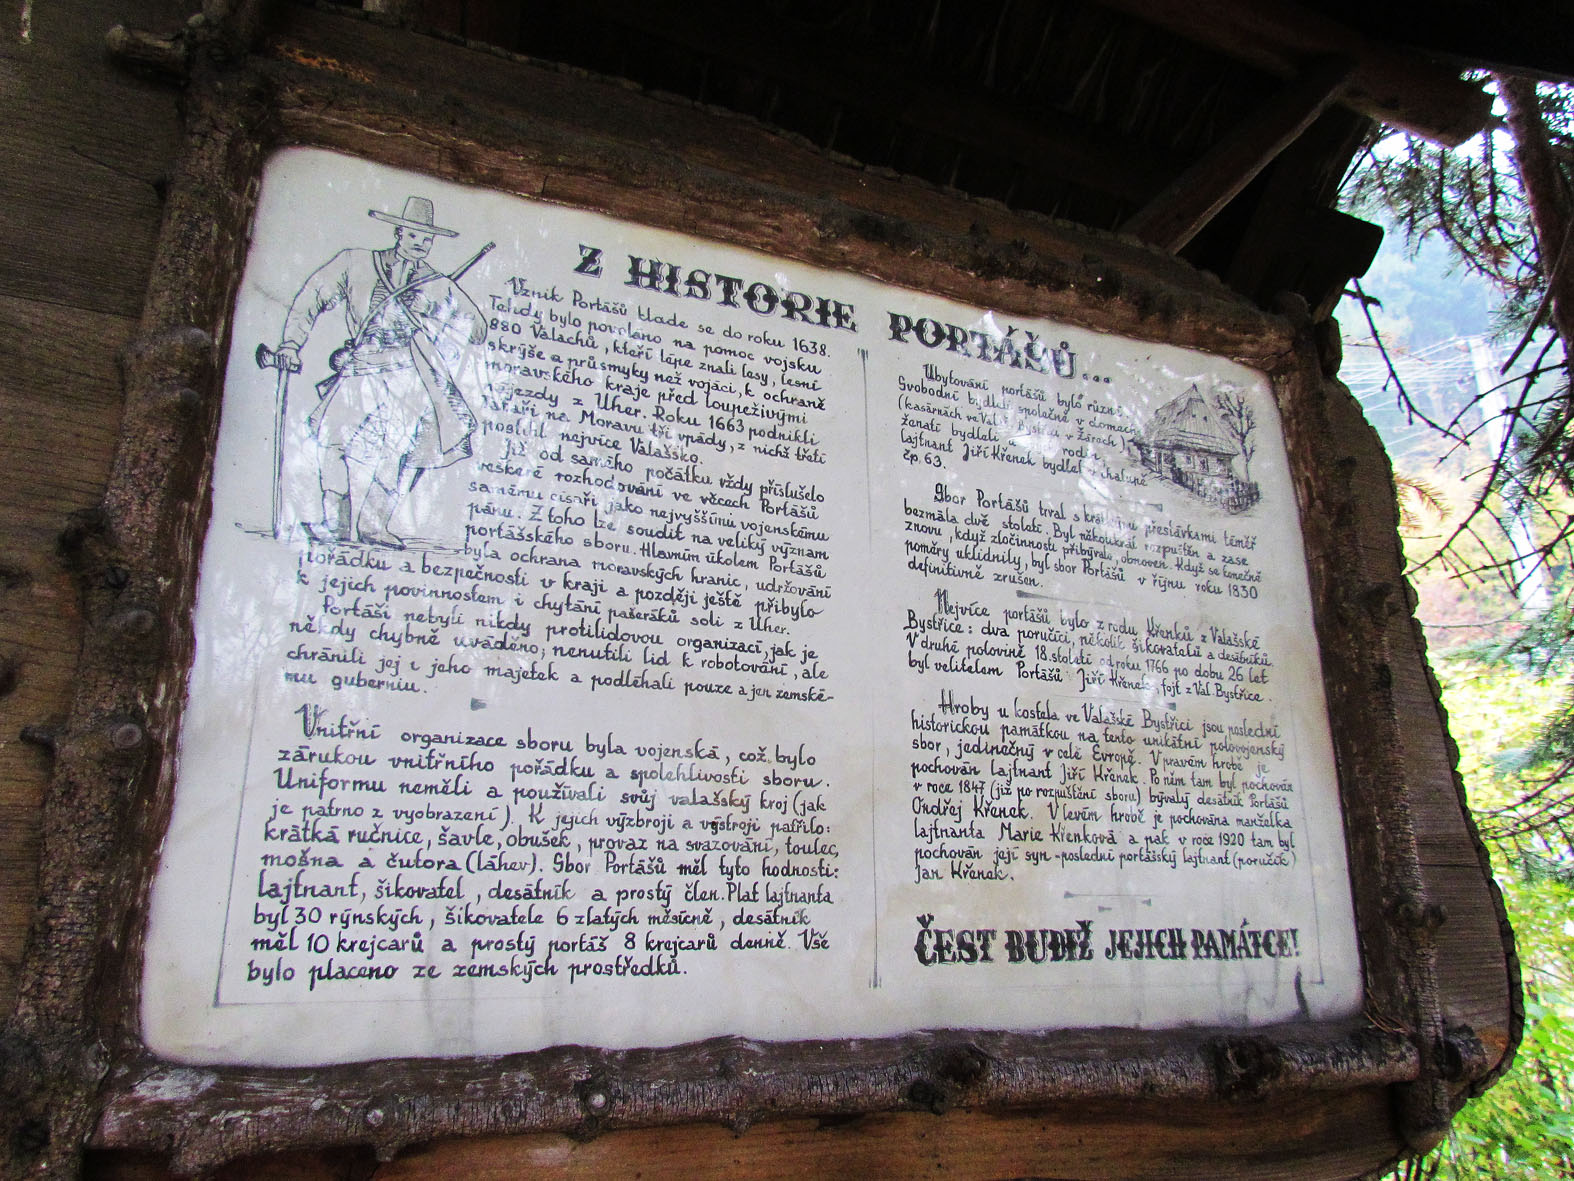 Z HISTORIE PORTÁŠŮ...
Vznik Portášů klade se do roku 1638.
Tehdy bylo povoláno na pomoc vojsku
880 Valachů, kteří lépe znali lesy, lesní
skrýše a průsmyky než vojáci, k ochraně
moravského kraje před loupeživými
nájezdy z Uher. Roku 1663 podnikli
Tataři na Moravu tři vpády, z nichž třetí
postihl nejvíce Valašsko.
Již od samého počátku vždy příslušelo
veškeré rozhodování ve věcech Portášů
samému císaři jako nejvyššímu vojenskému
pánu. Z toho lze soudit na veliký význam
portášského sboru. Hlavním úkolem Portášů
byla ochrana moravských hranic, udržování
pořádku a bezpečnosti v kraji a později ještě přibylo
k jejich povinnostem i chytání pašeráků soli z Uher.
Portáši nebyli nikdy protilidovou organizací, jak je
někdy chybně uváděno; nenutili lid k robotování, ale
chránili jej i jeho majetek a podléhali pouze a jen zemské-
mu guberniu.
Vnitřní organizace sboru byla vojenská, což bylo
zárukou vnitřního pořádku a spolehlivosti sboru.
Uniformu neměli a používali svůj valašský kroj (jak
je patrno z vyobrazení). K jejich výzbroji a výstroji patřilo:
krátká ručnice, šavle, obušek, provaz na svazování, toulec,
mošna a čutora (láhev). Sbor Portášů měl tyto hodnosti:
lajtnant, šikovatel, desátník a prostý člen. Plat lajtnanta
byl 30 rýnských, šikovatele 6 zlatých měsíčně, desátník
měl 10 krejcarů a prostý portáš 8 krejcarů denně. Vše
bylo placeno ze zemských prostředků.
Ubytování portášů bylo různé.
Svobodní bydleli společně v domech
(kasárnách ve Valaš. Bystřici v Žárech)
ženatí bydleli u rodin
lajtnant Jiří Křenek bydlel v chalupě
čp. 63.
Sbor Portášů trval s krátkými přestávkami téměř
bezmála dvě století. Byl několikrát rozpuštěn a zase
znovu, když zločinnosti přibývalo, obnoven. Když se konečně
poměry uklidnily, byl sbor Portášů v říjnu roku 1830
definitivně zrušen.
Nejvíce portášů bylo z rodu Křenků z Valašské
Bystřice: dva poručíci, několik šikovatelů a desátníků.
V druhé polovině 18. století od roku 1766 po dobu 26 let
byl velitelem Portášů Jiří Křenek, fojt z Val. Bystřice.
Hroby u kostela ve Valašské Bystřici jsou poslední
historickou památkou na tento unikátní polovojenský
sbor, jedinečný v celé Evropě. V pravém hrobě je
pochován lajtnant Jiří Křenek. Po něm tam byl pochován
v roce 1847 (již po rozpuštění sboru) bývalý desátník Portášů
Ondřej Křenek. V levém hrobě je pochována manželka
lajtnanta Marie Křenková a pak v roce 1920 tam byl
pochován její syn - poslední portášský lajtnant (poručík)
Jan Křenek.
ČEST BUDIŽ JEJICH PAMÁTCE!